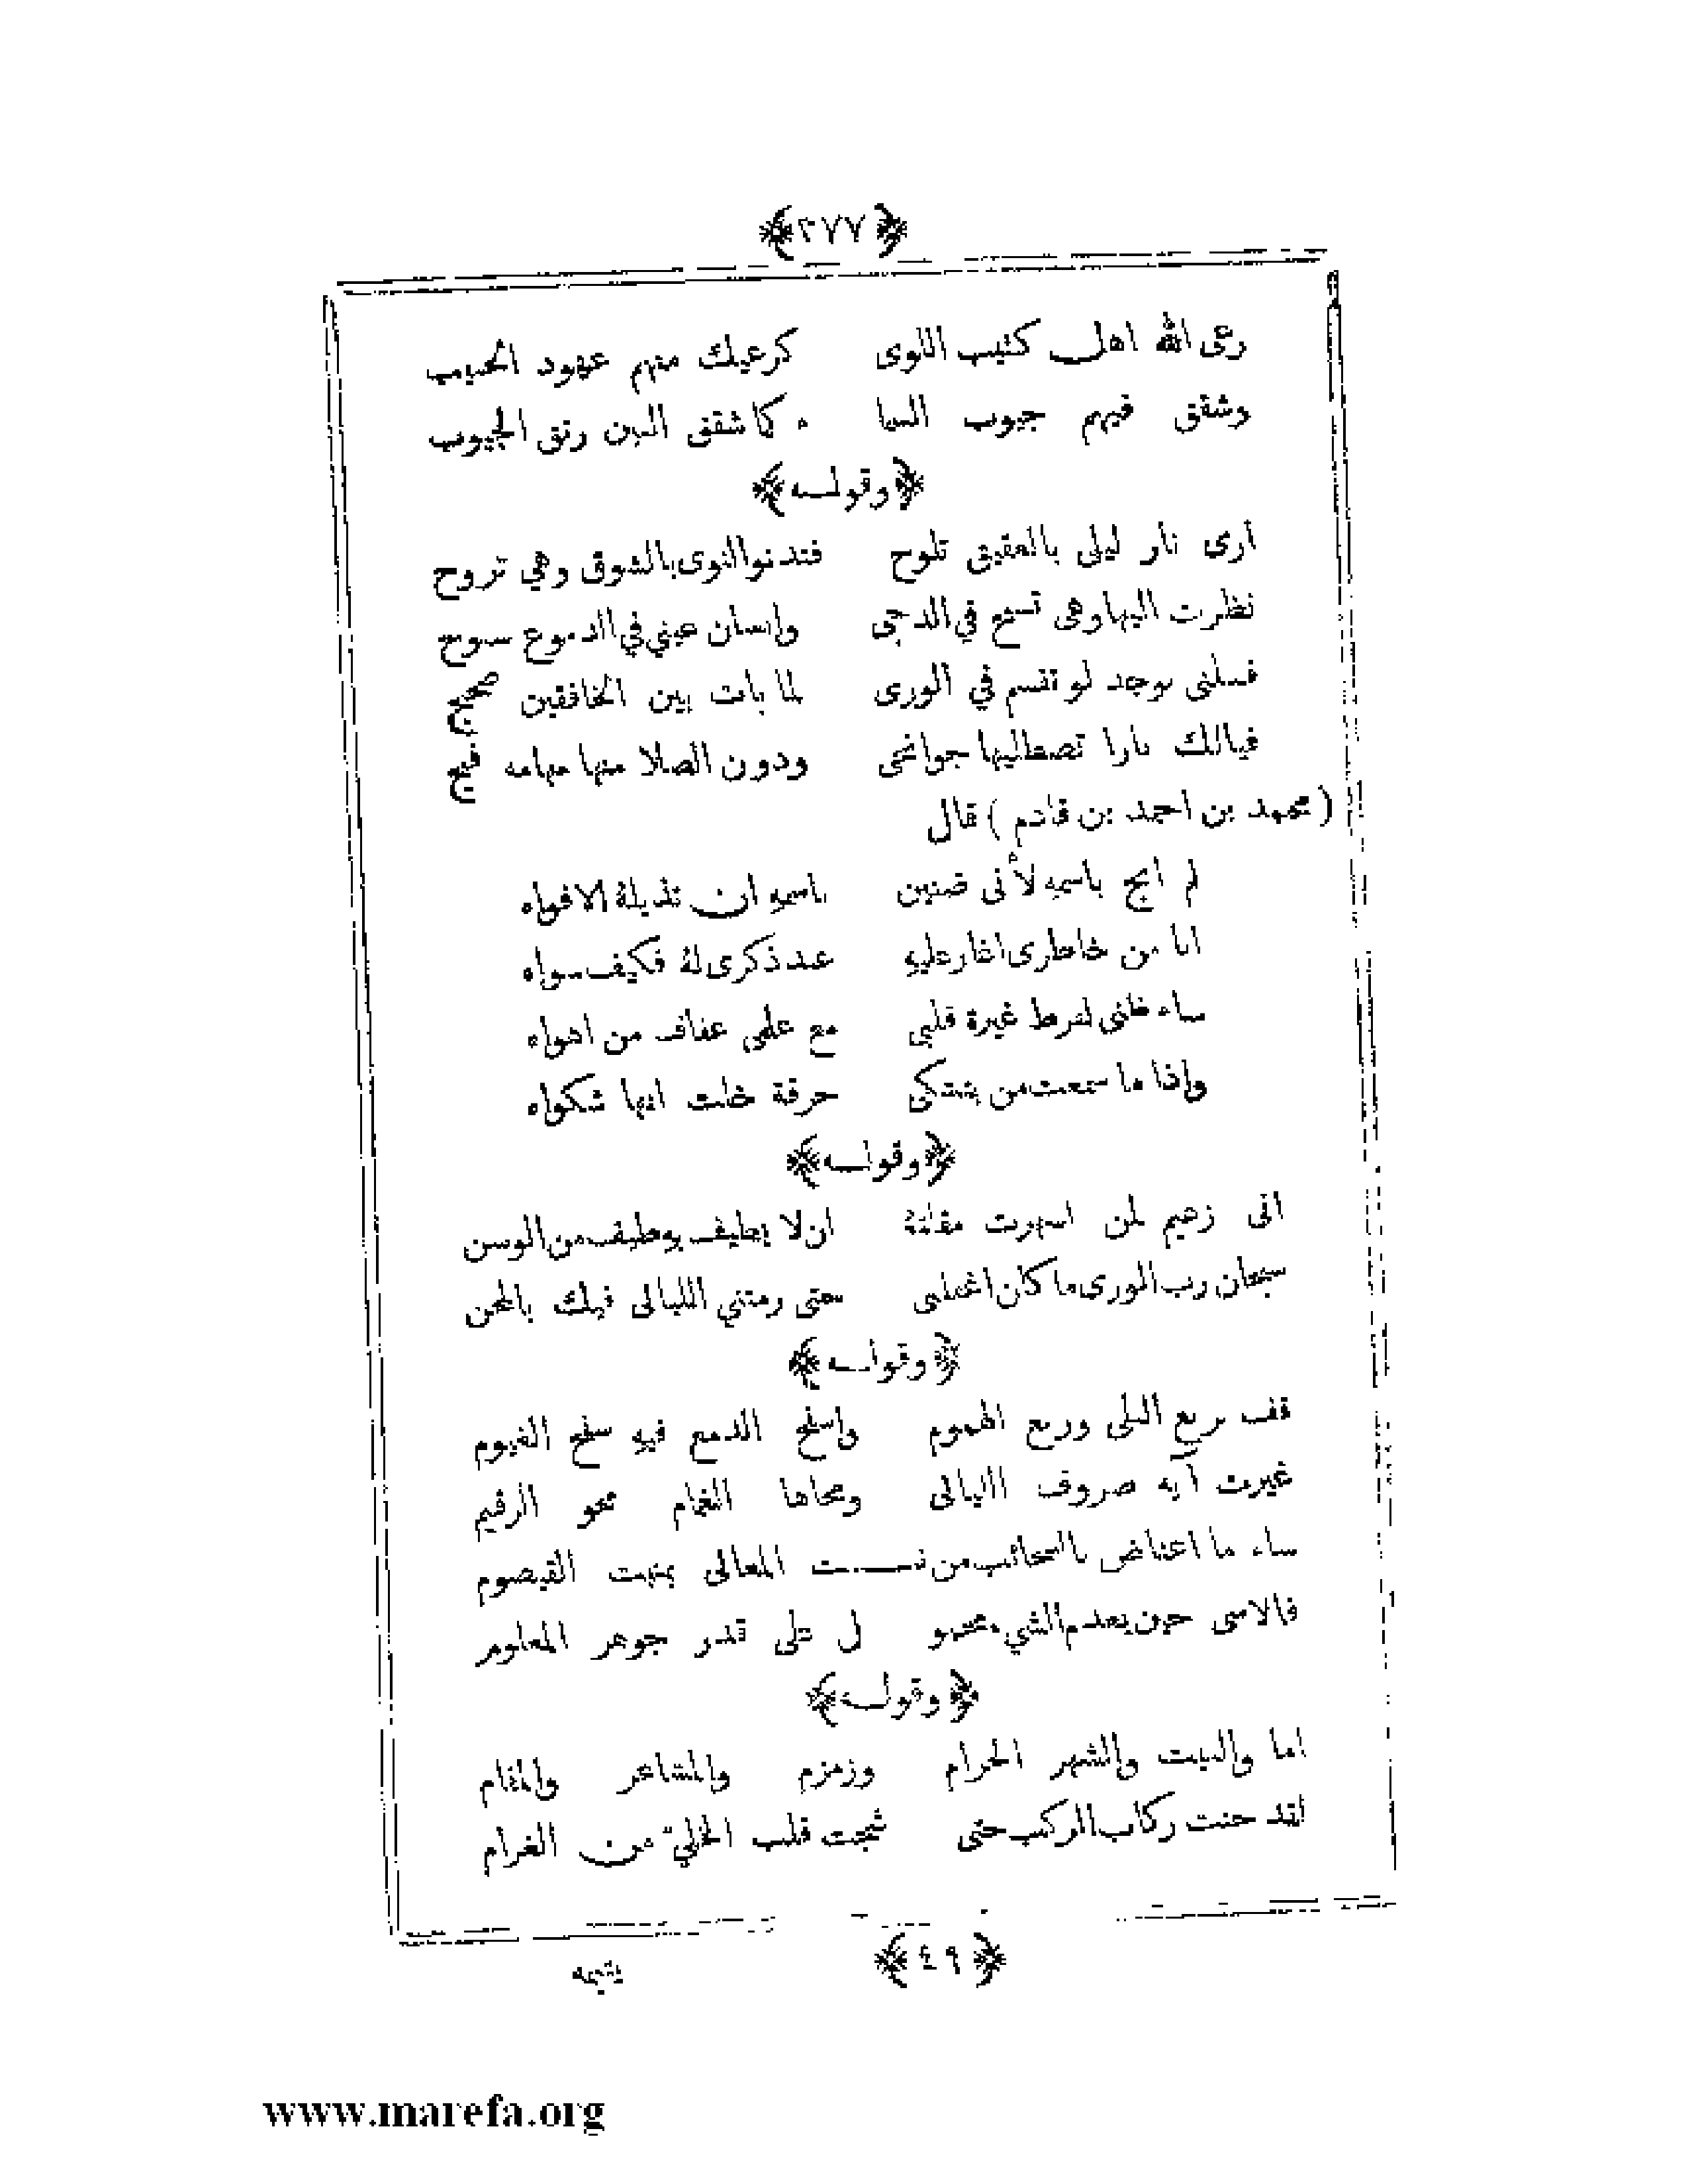 ﴿٢٧٧﴾
رعى الله اهل كثيب اللوى كرعيك منهم عهود الحبيب
وشقق فيهم جيوب الحيا كما شقق البين رتق الجيوب
﴿وقوله﴾
ارى نار ليلى بالعقيق تلوح فتدنو النوى بالشوق وهي تروح
نظرت اليها وهى تسنح في الدجى وانسان عيني في الدموع سبوح
فسلنى بوجد لو تقسم في الورى لما بات بين الخافقين صحيح
فيالك نارا تصطليها جوانحى ودون الصلا منها مهامه فيح
( محمد بن احمد بن قادم ) قال
لم ابح باسمهِ لأنى ضنين باسمهِ ان تذيلهُ الافواه
انا من خاطرى اغار عليهِ عند ذكرى لهُ فكيف سواه
ساء ظنى لفرط غيرة قلبى مع علمى عفاف من اهواه
واذا ما سمعت من يشتكى حرقة خلت انها شكواه
﴿وقوله﴾
انى زعيم لمن اسهرت مقلتهُ ان لا يطيف بهِ طيف من الوسن
سبحان رب الورى ما كان اغفلنى حتى رمتني الليالى فيك بالمحن
﴿وقوله﴾
قف بربع البلى وربع الهموم واسفح الدمع فيهِ سفح الغيوم
غيرت آيه صروف الليالى ومحاها الغمام محو الرقيم
ساء ما اعتاض بالسحائب من نبت المعالى بمنبت القيصوم
فالاسى حين يعدم الشيء محمو ل على قدر جوهر المعلوم
﴿وقوله﴾
اما والبيت والشهر الحرام وزمزم والمشاعر والمقام
لقد حنت ركاب الركب حتى شجت قلب الخليّ من الغرام
﴿٤٩﴾
يتيمه
www.marefa.org